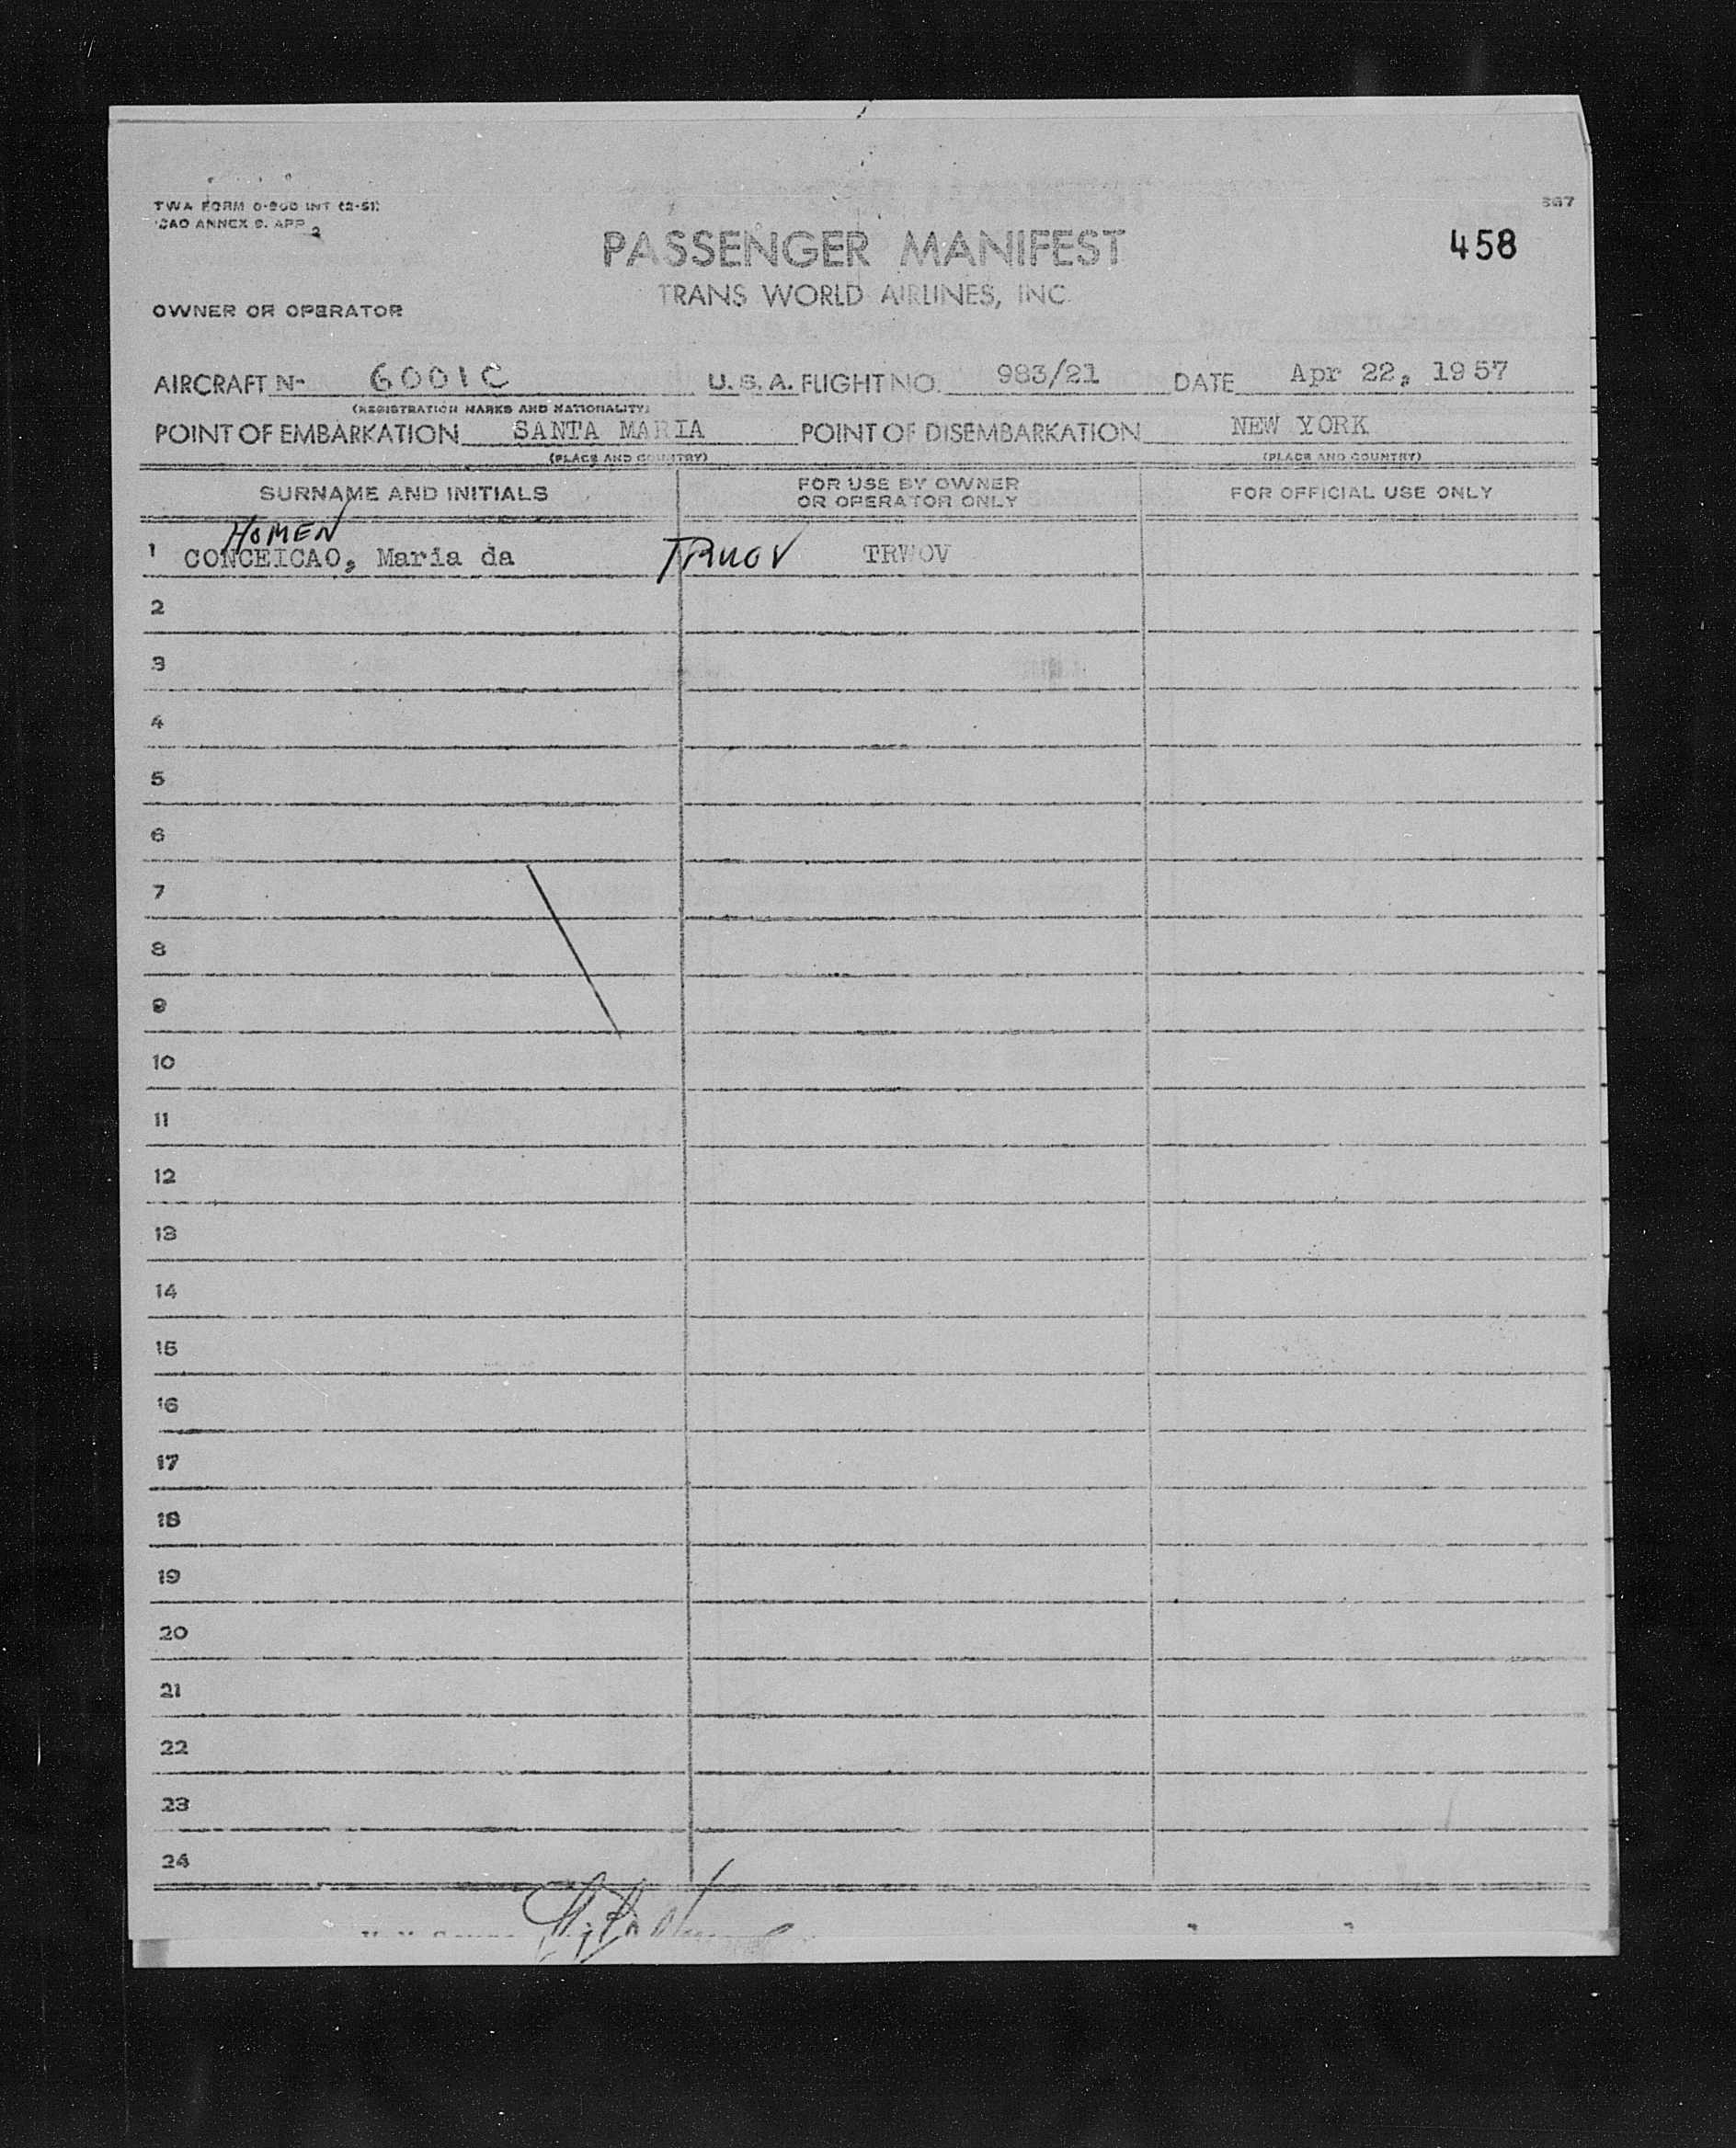 367
TWA FORM 0-200 INT (2-51)
ICAO ANNEX 9. APP 2
PASSENGER MANIFEST
458
TRANS WORLD AIRLINES, INC.
OWNER OR OPERATOR
AIRCRAFT N- 6001C U. S. A. FLIGHT NO. 983/21 DATE Apr 22, 1957
(REGISTRATION MARKS AND NATIONALITY)
POINT OF EMBARKATION SANTA MARIA POINT OF DISEMBARKATION NEW YORK
(PLACE AND COUNTRY) (PLACE AND COUNTRY)
SURNAME AND INITIALS FOR USE BY OWNER OR OPERATOR ONLY FOR OFFICIAL USE ONLY
HOMEN
1 CONCEICAO, Maria da TRWOV TRWOV
2
3
4
5
6
7
8
9
10
11
12
13
14
15
16
17
18
19
20
21
22
23
24